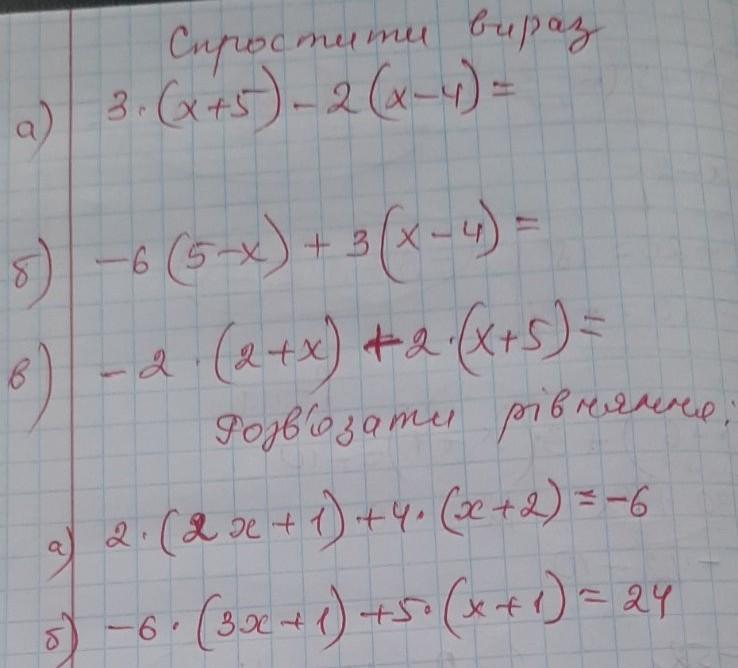 Спростити вираз
а) 3·(x+5)-2(x-4)=
б) -6(5-x)+3(x-4)=
в) -2·(2+x)+2·(x+5)=
Розв'язати рівняння:
а) 2·(2x+1)+4·(x+2)=-6
б) -6·(3x+1)+5·(x+1)=24